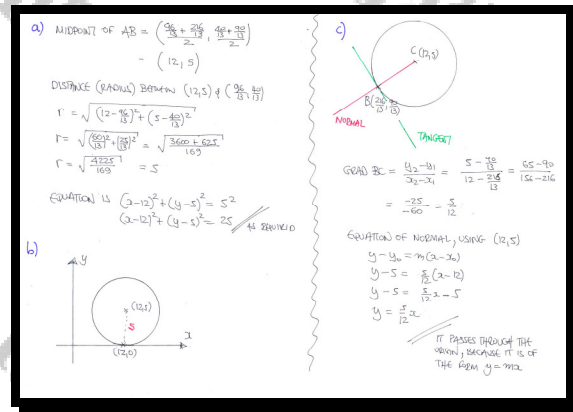 a) MIDPOINT OF AB = ( (96/13 + 216/13)/2 , (40/13 + 90/13)/2 )
= (12, 5)
DISTANCE (RADIUS) BETWEEN (12,5) & (96/13, 40/13)
r = √( (12 - 96/13)² + (5 - 40/13)² )
r = √( (60/13)² + (25/13)² ) = √( (3600 + 625)/169 )
r = √( 4225/169 ) = 5
EQUATION IS (x-12)² + (y-5)² = 5²
(x-12)² + (y-5)² = 25
AS REQUIRED
b)
y
(12,5)
5
x
(12,0)
c)
C(12,5)
B(216/13, 90/13)
NORMAL
TANGENT
GRAD BC = (y₂-y₁)/(x₂-x₁) = (5 - 90/13)/(12 - 216/13) = (65-90)/(156-216)
= -25/-60 = 5/12
EQUATION OF NORMAL, USING (12,5)
y - y₀ = m(x - x₀)
y - 5 = 5/12 (x - 12)
y - 5 = 5/12 x - 5
y = 5/12 x
IT PASSES THROUGH THE
ORIGIN, BECAUSE IT IS OF
THE FORM y = mx